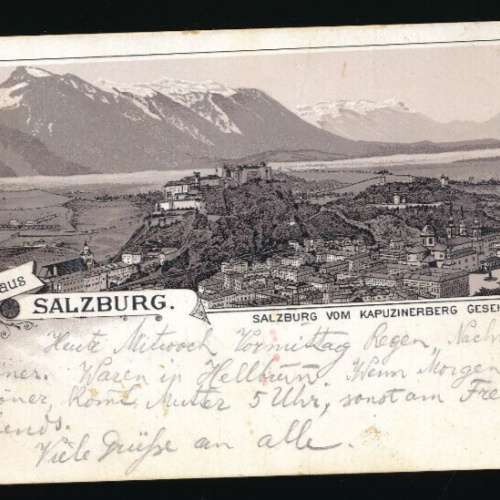 aus
SALZBURG.
SALZBURG VOM KAPUZINERBERG GESEH
Heute Mitwoch Vormittag Regen, Nach
Waren in Hellbrun. Wenn Morgen
kome Mutter 5 Uhr, sonst am Fre
ends.
Viele Grüße an alle.